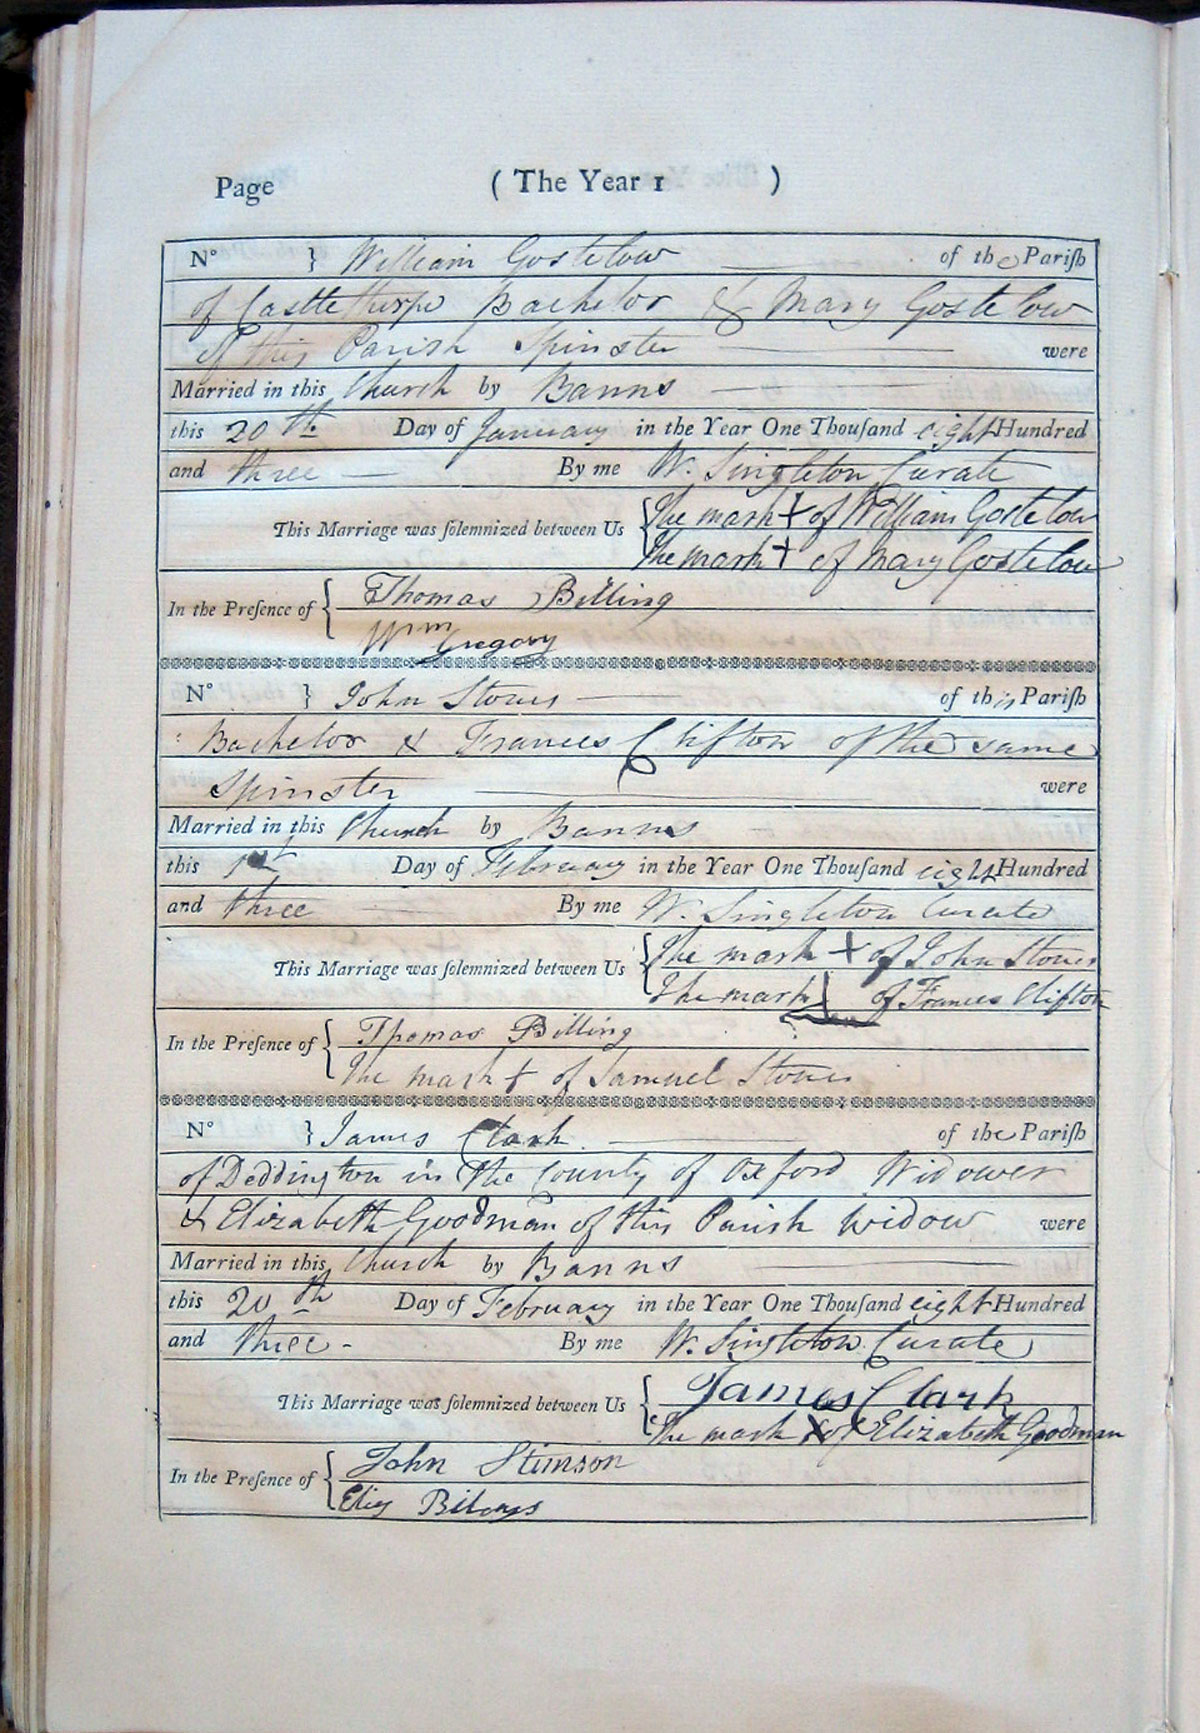 Page ( The Year 1 )
N° } William Gostelow of the Pariſh
of Castlethorpe Bachelor & Mary Gostelow
of this Parish Spinster were
Married in this Church by Banns
this 20th Day of January in the Year One Thouſand eight Hundred
and three By me W. Singleton Curate
This Marriage was ſolemnized between Us { The mark + of William Gostelow
The mark + of Mary Gostelow
In the Preſence of { Thomas Billing
Wm Gregory
N° } John Stones of this Pariſh
Bachelor & Frances Clifton of the same
Spinster were
Married in this Church by Banns
this 1st Day of February in the Year One Thouſand eight Hundred
and three By me W. Singleton Curate
This Marriage was ſolemnized between Us { The mark + of John Stones
The mark of Frances Clifton
In the Preſence of { Thomas Billing
The mark + of Samuel Stones
N° } James Clark of the Pariſh
of Deddington in the County of Oxford Widower
& Elizabeth Goodman of this Parish Widow were
Married in this Church by Banns
this 20th Day of February in the Year One Thouſand eight Hundred
and three - By me W. Singleton Curate
This Marriage was ſolemnized between Us { James Clark
The mark X of Elizabeth Goodman
In the Preſence of { John Stimson